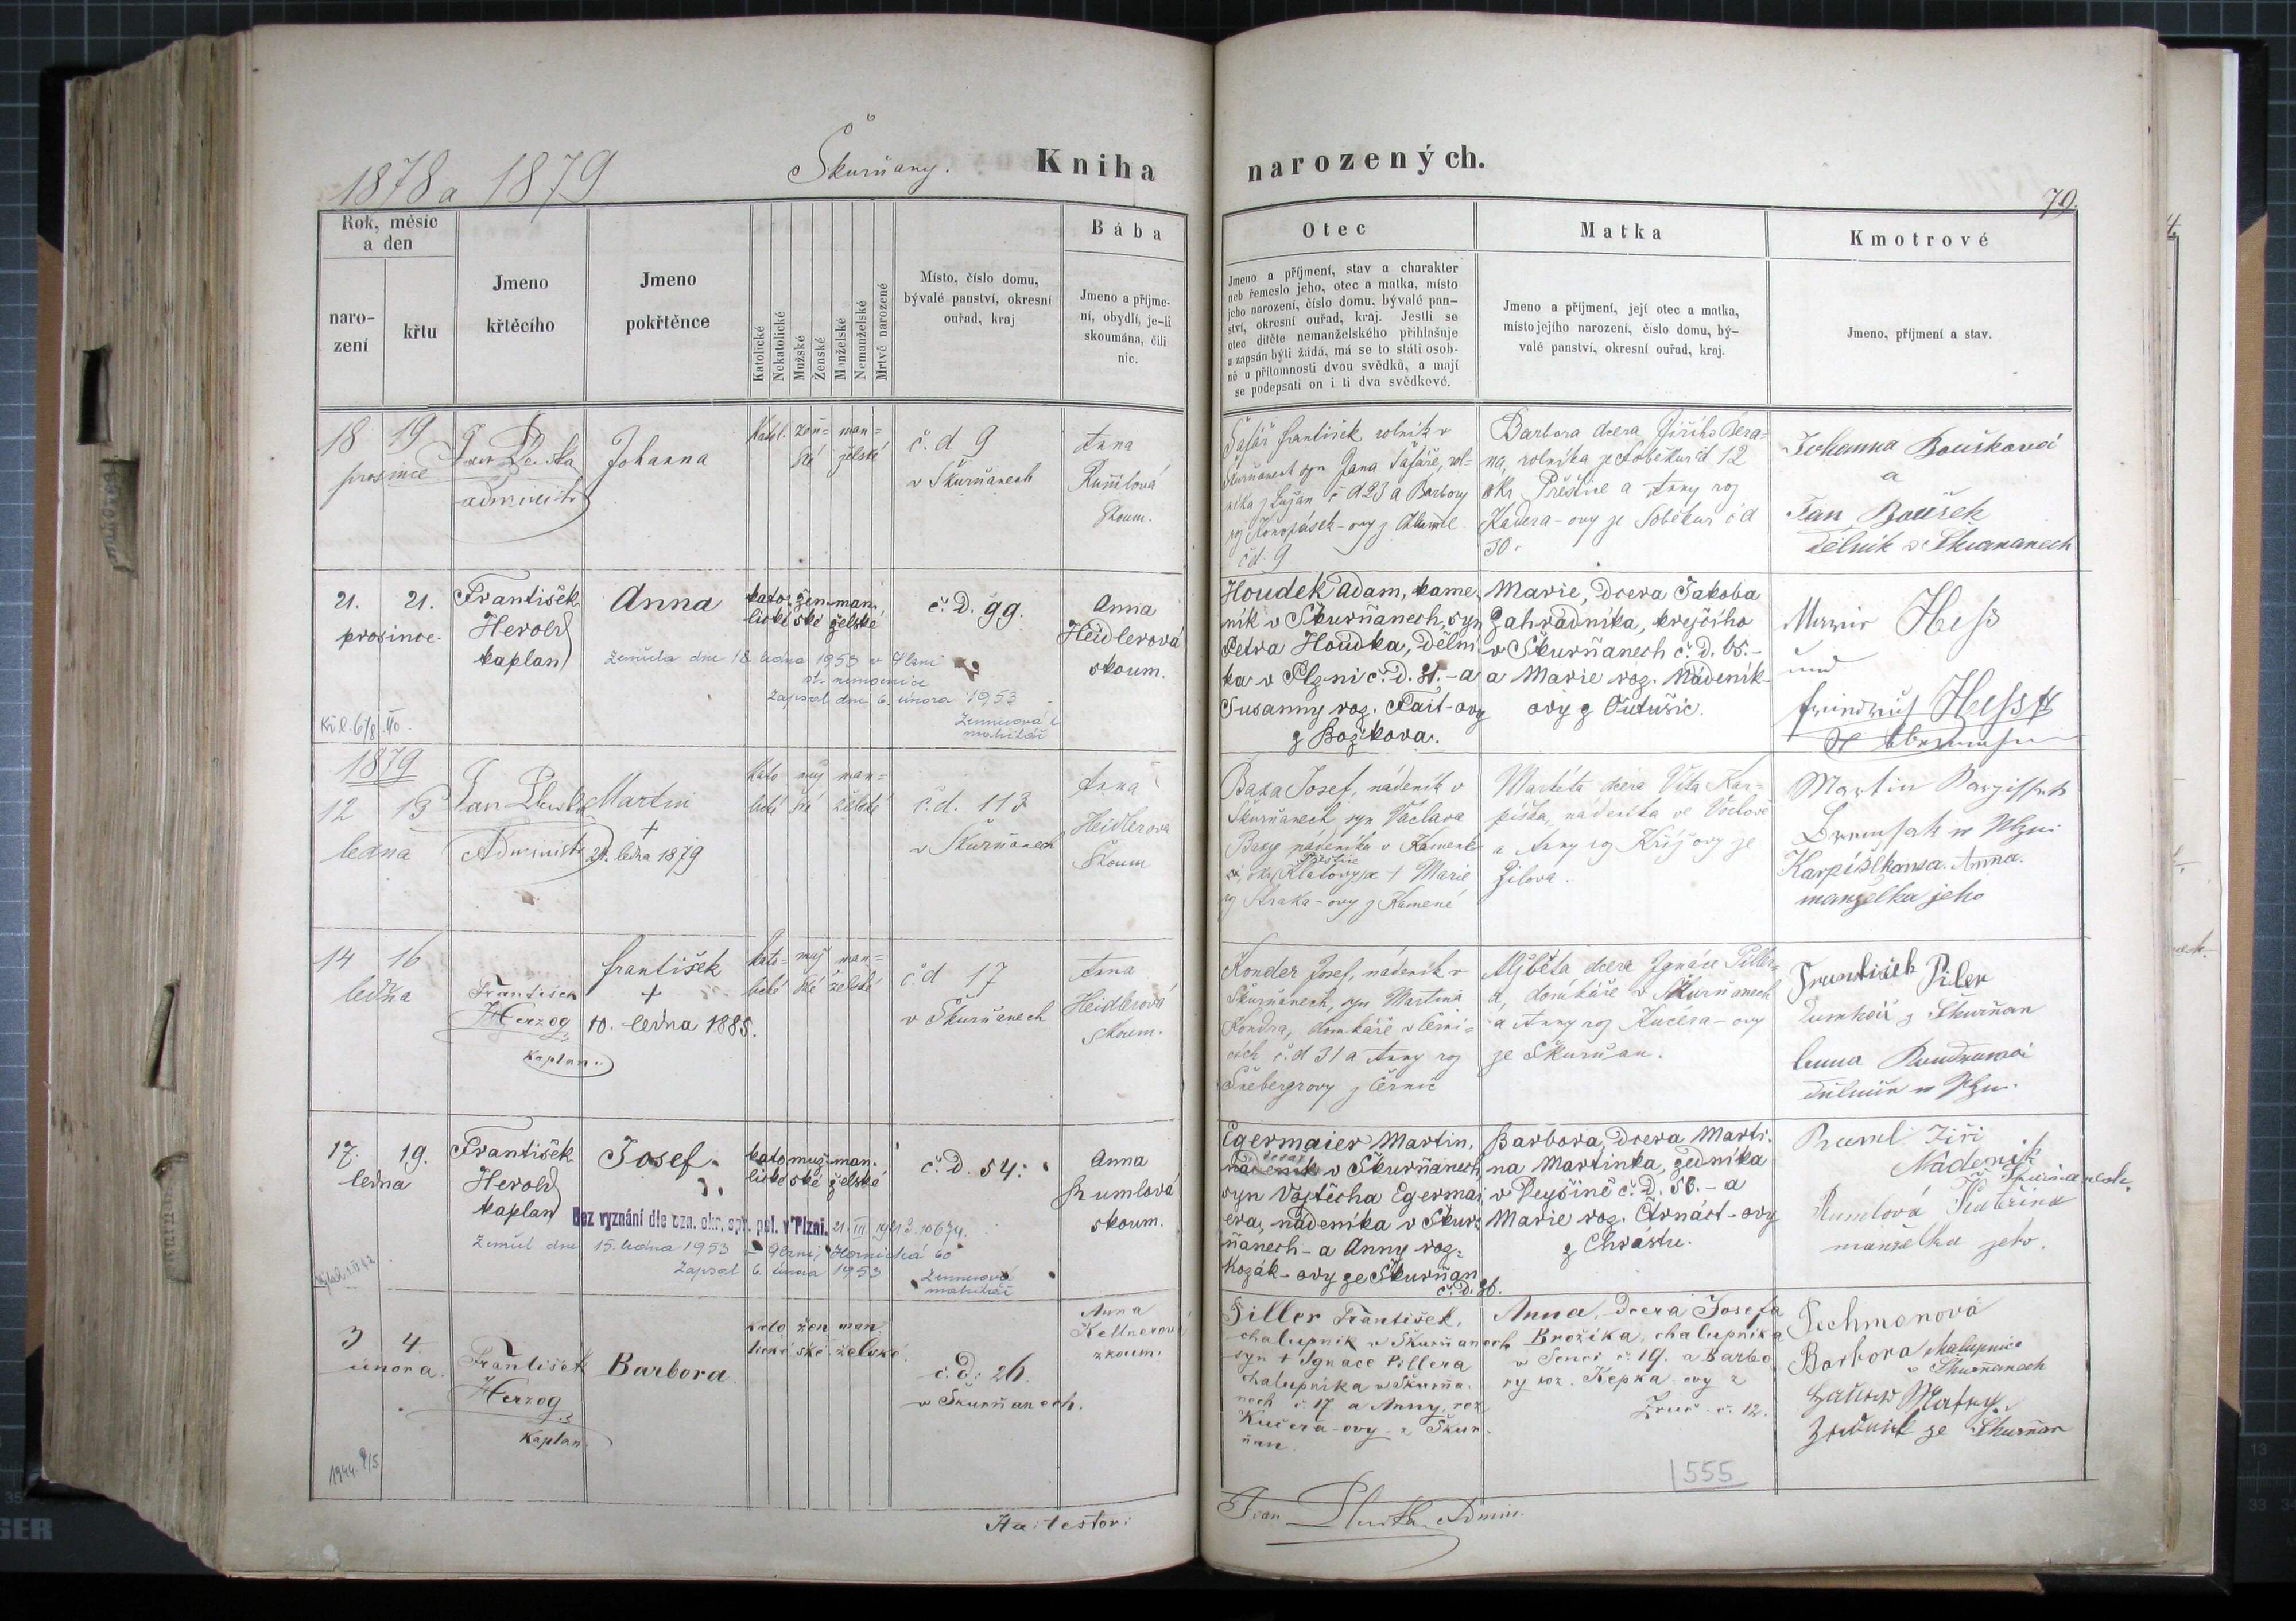 1878 a 1879
Škurňany.
Kniha
narozených.
79.
Rok, měsíc
a den
naro-
zení
křtu
Jmeno
křtěcího
Jmeno
pokřtěnce
Katolické
Nekatolické
Mužské
Ženské
Manželské
Nemanželské
Mrtvě narozené
Místo, číslo domu,
bývalé panství, okresní
ouřad, kraj
Bába
Jmeno a příjme-
ní, obydlí, je-li
skoumána, čili
nic.
Otec
Jmeno a příjmení, stav a charakter
neb řemeslo jeho, otec a matka, místo
jeho narození, číslo domu, bývalé pan-
ství, okresní ouřad, kraj. Jestli se
otec dítěte nemanželského přihlašuje
a zapsán býti žádá, má se to státi osob-
ně u přítomnosti dvou svědků, a mají
se podepsati on i ti dva svědkové.
Matka
Jmeno a příjmení, její otec a matka,
místo jejího narození, číslo domu, bý-
valé panství, okresní ouřad, kraj.
Kmotrové
Jmeno, příjmení a stav.
18 19
prosince
Jan
administr
Johanna
Katol. žen= man=
ské želské
č. d 9
v Škurňanech
Anna
Rumlová
skoum.
Šafář František rolník v
Škurňanech syn Jana Šafáře, rol-
níka z Lužan č d 23 a Barbory
roz Konopásek-ovy z
č d. 9
Barbora dcera Jiřího Bera=
na, rolníka ze Soběkur č 12
okr. Přeštice a Anny roz
Kadera-ovy ze Soběkur č d
30.
Johanna Boušková
a
Jan Boušek
dělník v Skurnanech
21. 21.
prosince.
František
Herold
kaplan
Anna
kato= žen= man=
lické ské želské
č. D. 99.
Anna
Heidlerová
skoum.
zemřela dne 18. ledna 1953 v Plzni
st. nemocnice
Zapsal dne 6. února 1953
matrikář
Houdek Adam, kame-
ník v Škurňanech, syn
Petra Houdka, dělní-
ka v Plzni č. D. 31. - a
Susanny roz. Fait-ovy
z Božkova.
Marie, dcera Jakoba
Zahradníka, krejčího
v Škurňanech č. D. 65. -
a Marie roz. Nádeník-
ovy z Outušic.
Marie Heß
und
Heß
1879
12 13
ledna
Jan
Administr
Martin
+
21. ledna 1879
kato muž man=
lické ské želské
č. d. 113
v Škurňanech
Anna
Heidlerova
Skoum
Baxa Josef, nádeník v
Škurňanech, syn Václava
Baxy nádeníka v Kamené
Přeštice
okr. Klatovy a + Marie
roz Straka-ovy z Kamené
Markéta dcera Víta Kar-
píška, nádeníka ve Vochově
a Anny roz Kříž ovy ze
Zilova.
Martin
Anna.
manželka jeho
14 16
ledna
František
Herzog
Kaplan.
František
+
10. ledna 1885.
kato= muž man=
lické ské želské
č. d 17
v Škurňanech
Anna
Heidlerová
skoum.
Konder Josef, nádeník v
Škurňanech, syn Martina
Kondra, domkáře v Černi=
cích č. d 31 a Anny roz
z Černic
Alžběta dcera Ignáce Piller=
a, domkáře v Škurňanech
a Anny roz Kučera-ovy
ze Škurňan.
František Piler
Domkář z Skurňan
17. 19.
ledna
František
Herold
kaplan
Josef.
kato= muž= man=
lické ské želské
č. D. 54.
Anna
Rumlová
skoum.
Bez vyznání dle ozn. okr. spr. pol. v Plzni.
Zemřel dne 15. ledna 1953 v Plzni, Hornická 60
Zapsal 6. února 1953
matrikář
Egermaier Martin,
nádeník v Škurňanech,
syn Vojtěcha Egermai-
era, nádeníka v Škur-
ňanech - a Anny roz.
Kozák-ovy ze Škurňan
č. D. 26.
Barbora, dcera Marti-
na Martinka, zedníka
v Dejšině č. D. 56. - a
Marie roz. Arnášt-ovy
z Chrástu.
Jiři
Nádeník
Skurňanech.
Rumlová Kateřina
manželka jeho.
3 4
února.
František
Herzog
Kaplan.
Barbora
kato žen man
lické ské želské
č. d. 26.
v Škurňanech.
Anna
Kellnerová
zkoum.
1944
Piller František,
chalupník v Skurňanech
syn + Ignace Pillera
chalupníka v Škurňa-
nech č. 17. a Anny, roz
Kučera-ovy z Škur-
ňan
Anna, dcera Josefa
Brožíka, chalupníka
v Senci č. 19. a Barbo
ry roz. Kepka-ovy z
Zruč. č. 12.
Pechmanová
Barbora chalupnice
v Skurňanech
ze Skurňan
555
Attestor:
Jan Admin.